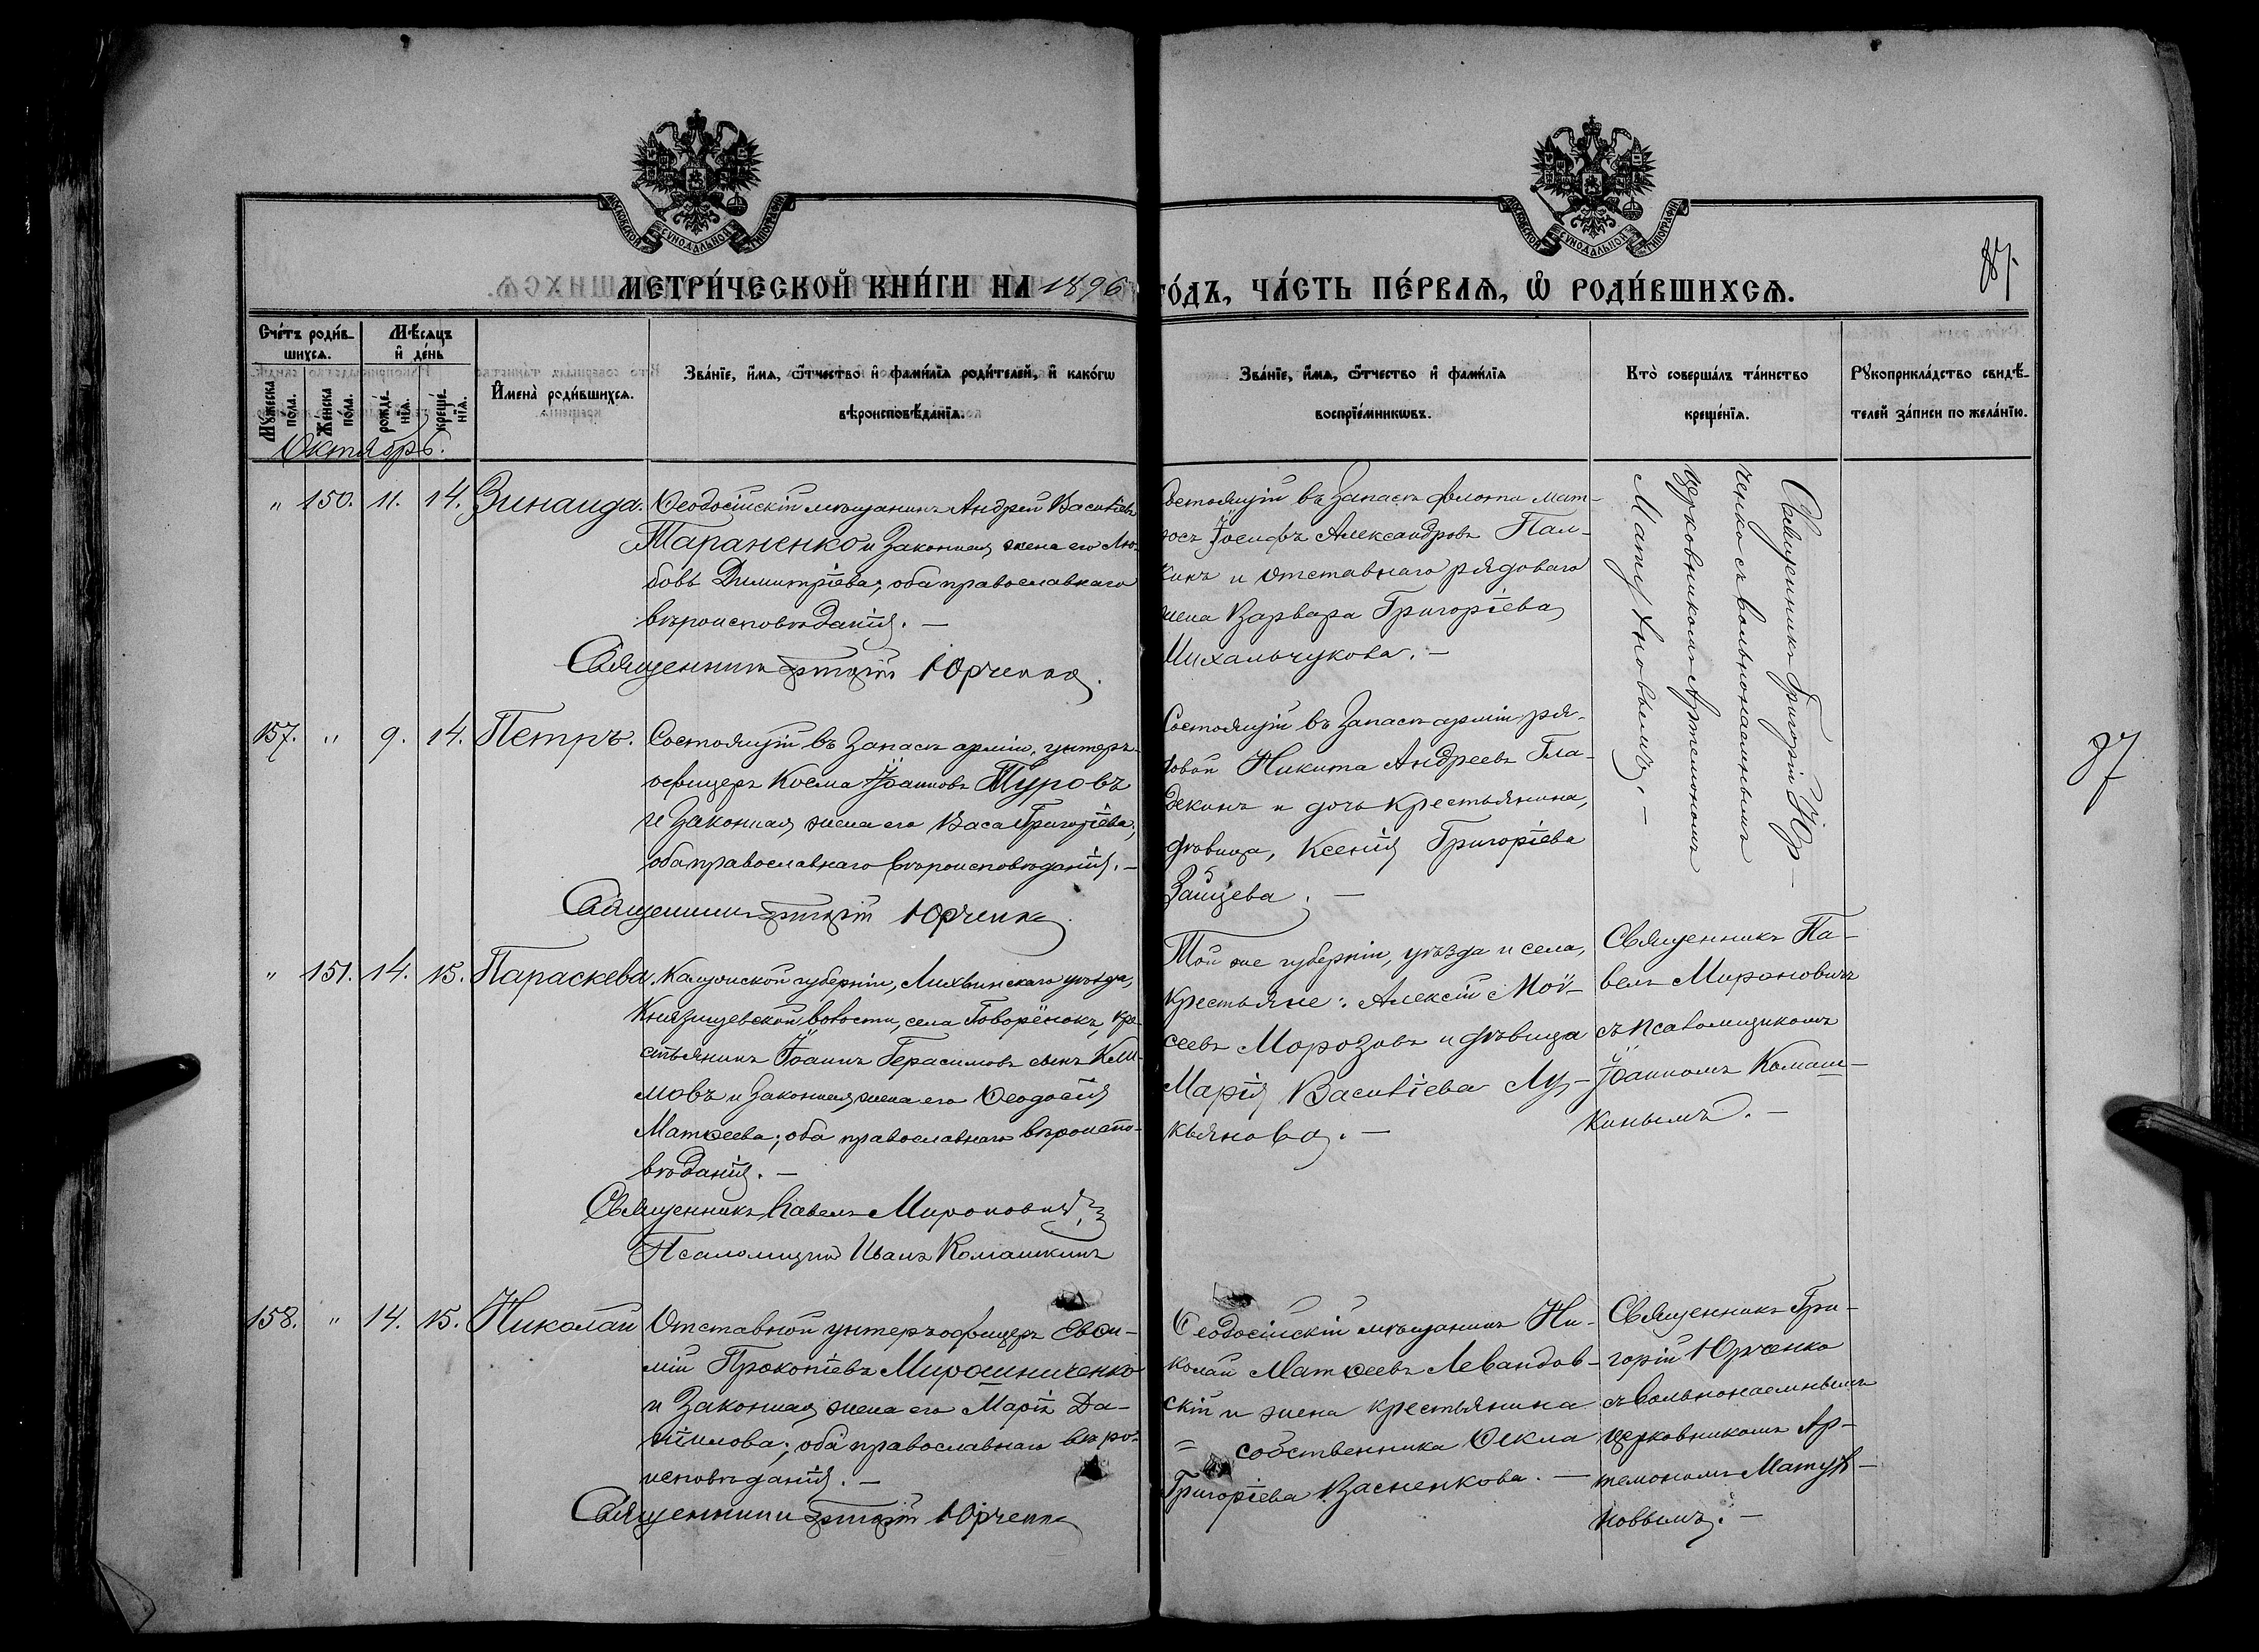 МОСКОВСКОЙ СУНОДАЛЬНОЙ ТИПОГРАФІИ
МОСКОВСКОЙ СУНОДАЛЬНОЙ ТИПОГРАФІИ
87.
МЕТРИ́ЧЕСКОЙ КНИ́ГИ НА 1896 ГО́ДЪ, ЧА́СТЬ ПЕ́РВАѦ, Ѡ РОДИ́ВШИХСѦ.
Сче́тъ роди́в-
шихсѧ.
Мѹжеска по́ла.
Же́нска по́ла.
Мѣ́сѧцъ
и҆ де́нь
рожде́-
нїѧ.
креще́-
нїѧ.
И҆мена̀ роди́вшихсѧ.
Зва́нїе, и҆́мѧ, ѻ҆́тчество и҆ фами́лїѧ роди́телей, и҆ како́гѡ
вѣроисповѣ́данїѧ.
Зва́нїе, и҆́мѧ, ѻ҆́тчество и҆ фами́лїѧ
воспрїе́мникѡвъ.
Кто̀ соверша́лъ та́инство
креще́нїѧ.
Рѹкоприкла́дство свидѣ́-
телей за́писи по жела́нїю.
Октябрь.
" 150. 11. 14. Зинаида.
Ѳеодосійскій мѣщанинъ Андрей Василіевъ
Тараненко и законная жена его Лю-
бовь Димитріева; оба православнаго
вѣроисповѣданія. —
Священникъ Григорій Юрченко.
Состоящій въ запасѣ флота мат-
росъ Іосифъ Александровъ Пал-
кинъ и отставнаго рядоваго
жена Варвара Григоріева
Михальчукова. —
Священникъ Григорій Юр-
ченко съ вольнонаемнымъ
церковникомъ Артемономъ
Матухновымъ. —
157. " 9. 14. Петръ.
Состоящій въ запасѣ арміи, унтеръ-
офицеръ Косма Іоанновъ Туровъ
и законная жена его Васа Григоріева,
оба православнаго вѣроисповѣданія. —
Священникъ Григорій Юрченко.
Состоящій въ запасѣ арміи ря-
довой Никита Андреевъ Гла-
декинъ и дочь крестьянина,
дѣвица, Ксенія Григоріева
Зайцева. —
87
" 151. 14. 15. Параскева.
Калужской губерніи, Лихвинскаго уѣзда,
Князищевской волости, села Говорёнокъ, кре-
стьянинъ Іоаннъ Герасимовъ сынъ Кли-
мовъ и законная жена его Ѳеодосія
Матѳеева; оба православнаго вѣроиспо-
вѣданія. —
Священникъ Павелъ Мироновичъ
Псаломщикъ Иванъ Комашкинъ
Той же губерніи, уѣзда и села,
крестьяне: Алексій Мої-
сеевъ Морозовъ и дѣвица
Марія Василіева Лу-
кьянова. —
Священникъ Па-
велъ Мироновичъ
съ псаломщикомъ
Іоанномъ Комаш-
кинымъ. —
158. " 14. 15. Николай
Отставной унтеръ-офицеръ Евѳи-
мій Прокопіевъ Мирошниченко
и законная жена его Марія Да-
ніилова; оба православнаго вѣро-
исповѣданія. —
Священникъ Григорій Юрченко
Ѳеодосійскій мѣщанинъ Ни-
колай Матѳеевъ Левандов-
скій и жена крестьянина
= собственника Ѳекла
Григоріева Васненкова. —
Священникъ Гри-
горій Юрченко
съ вольнонаемнымъ
церковникомъ Ар-
темономъ Матух-
новымъ. —